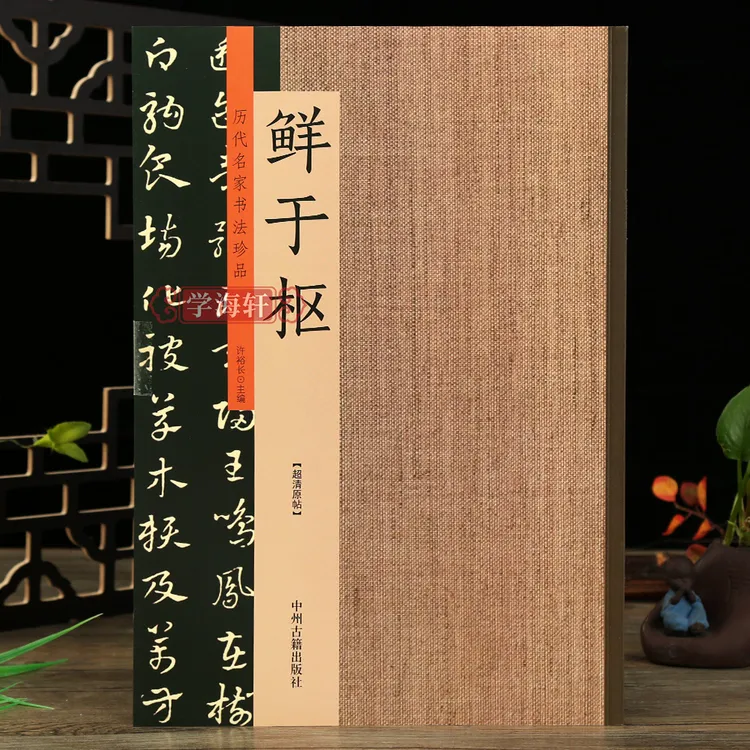 鲜于枢
历代名家书法珍品
许裕长⊙主编
【超清原帖】
中州古籍出版社
歸王鳴鳳在樹
白駒食場化被草木賴及萬方
学海轩